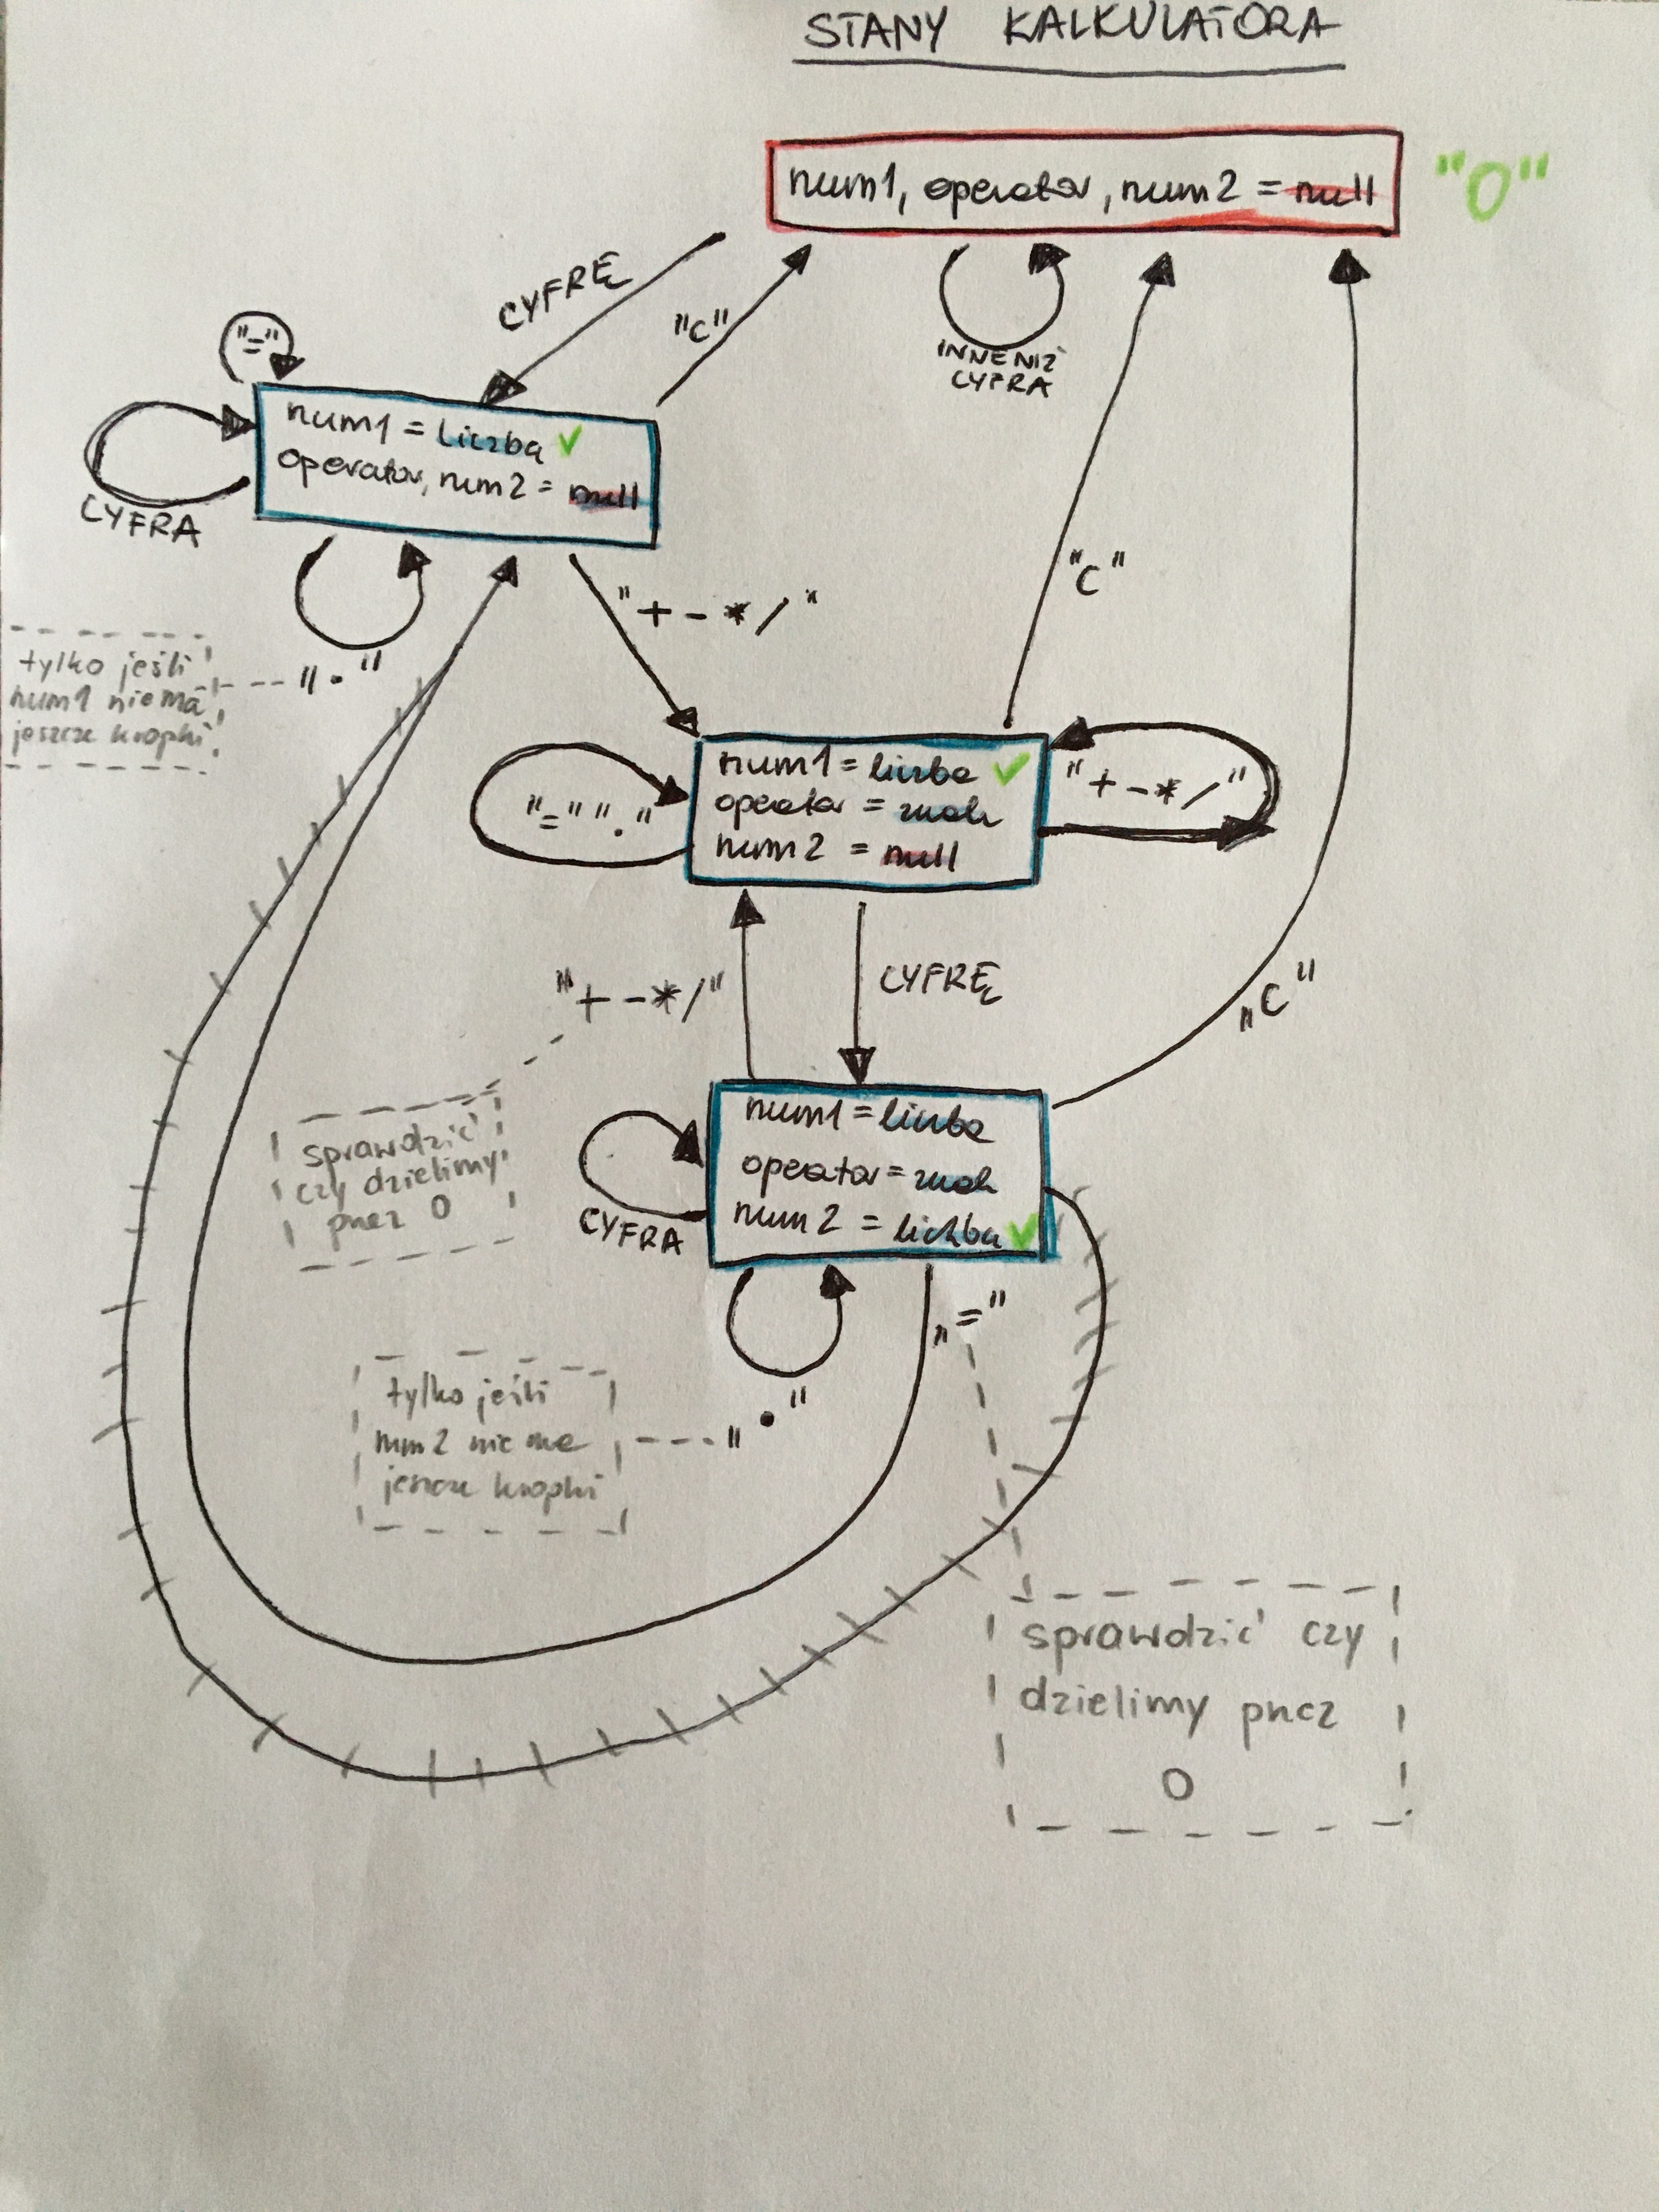 STANY KALKULATORA
num1, operator, num2 = null
"0"
CYFRĘ
"C"
INNE NIŻ
CYFRA
"="
num1 = Liczba ✓
operator, num2 = null
CYFRA
"."
tylko jeśli
num1 nie ma
jeszcze kropki
"+ - * /"
"C"
num1 = liczba ✓
operator = znak
num2 = null
"=" "."
"+ - * /"
"+ - * /"
CYFRĘ
"C"
sprawdzić
czy dzielimy
przez 0
num1 = liczba
operator = znak
num2 = liczba ✓
CYFRA
"="
"."
tylko jeśli
num2 nie ma
jeszcze kropki
sprawdzić czy
dzielimy przez
0